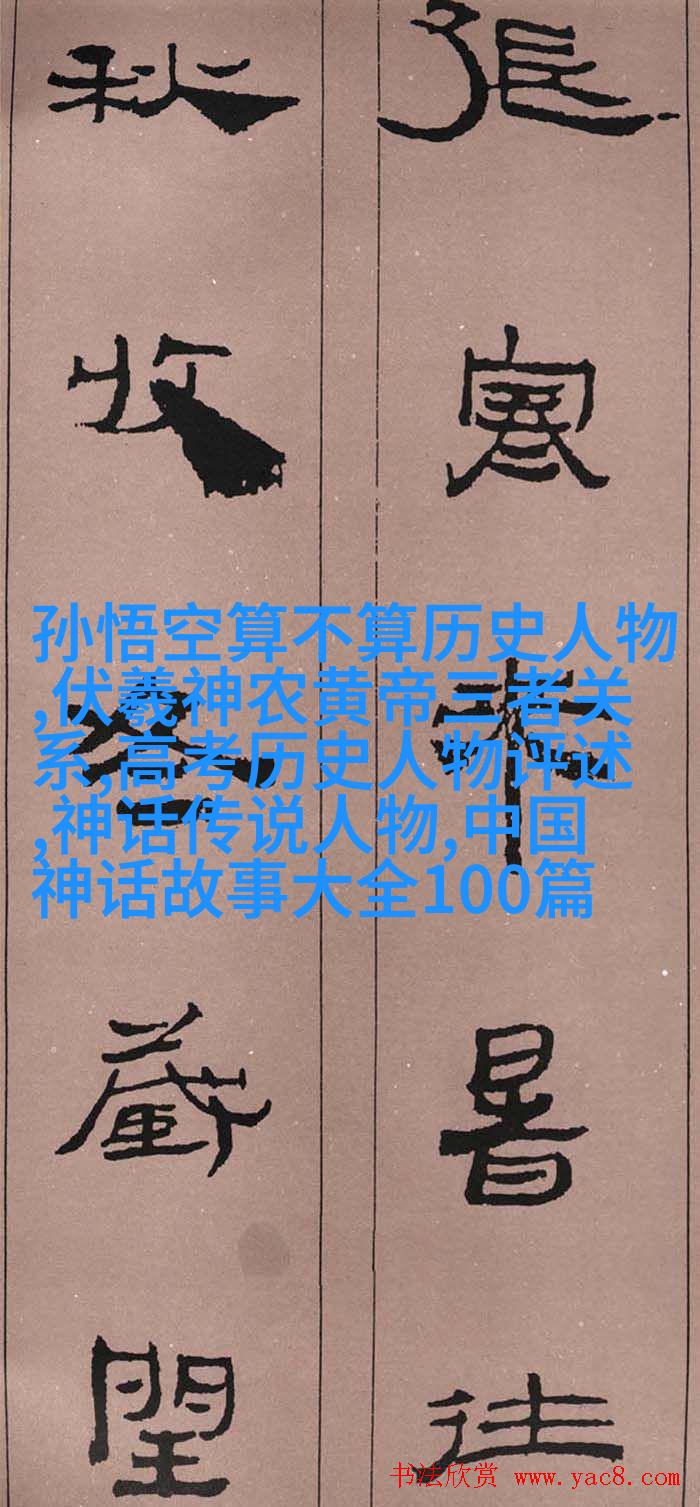 張寒來暑往
秋收冬藏閏
孙悟空算不算历史人物
,伏羲神农黄帝三者关
系,高考历史人物评述
,神话传说人物,中国
神话故事大全100篇
书法欣赏 www.yac8.com